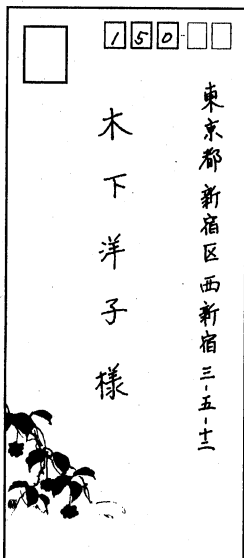 150
東京都新宿区西新宿三-五-十二
木下洋子様